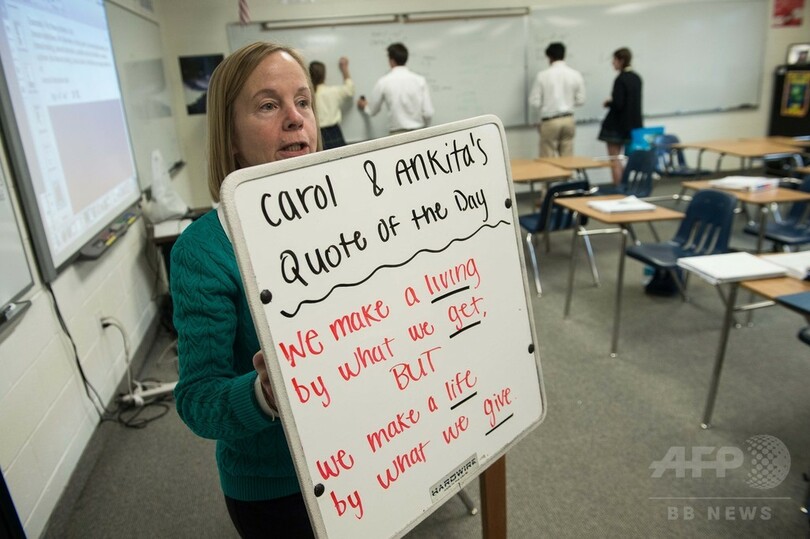 Carol & Ankita's
Quote of the Day
We make a living
by what we get,
BUT
we make a life
by what we give.
HARDWIRE
AFP
BB NEWS